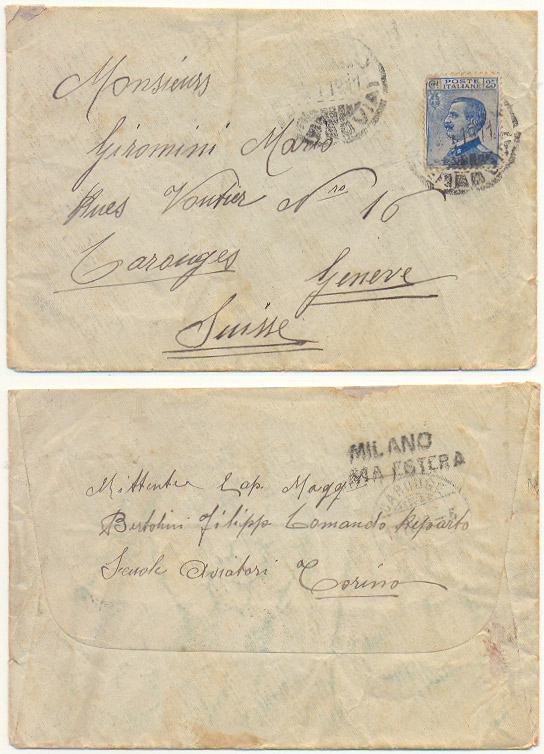 POSTE
ITALIANE 25
Monsieurs
Giromini Mario
Rues Voutier Nro 16
Carouges
Geneve
Suisse
MILANO
MA ESTERA
CAROUGE
Mittente Cap. Magg
Bertolini Filippo Comando Reparto
Scuole Aviatori Torino